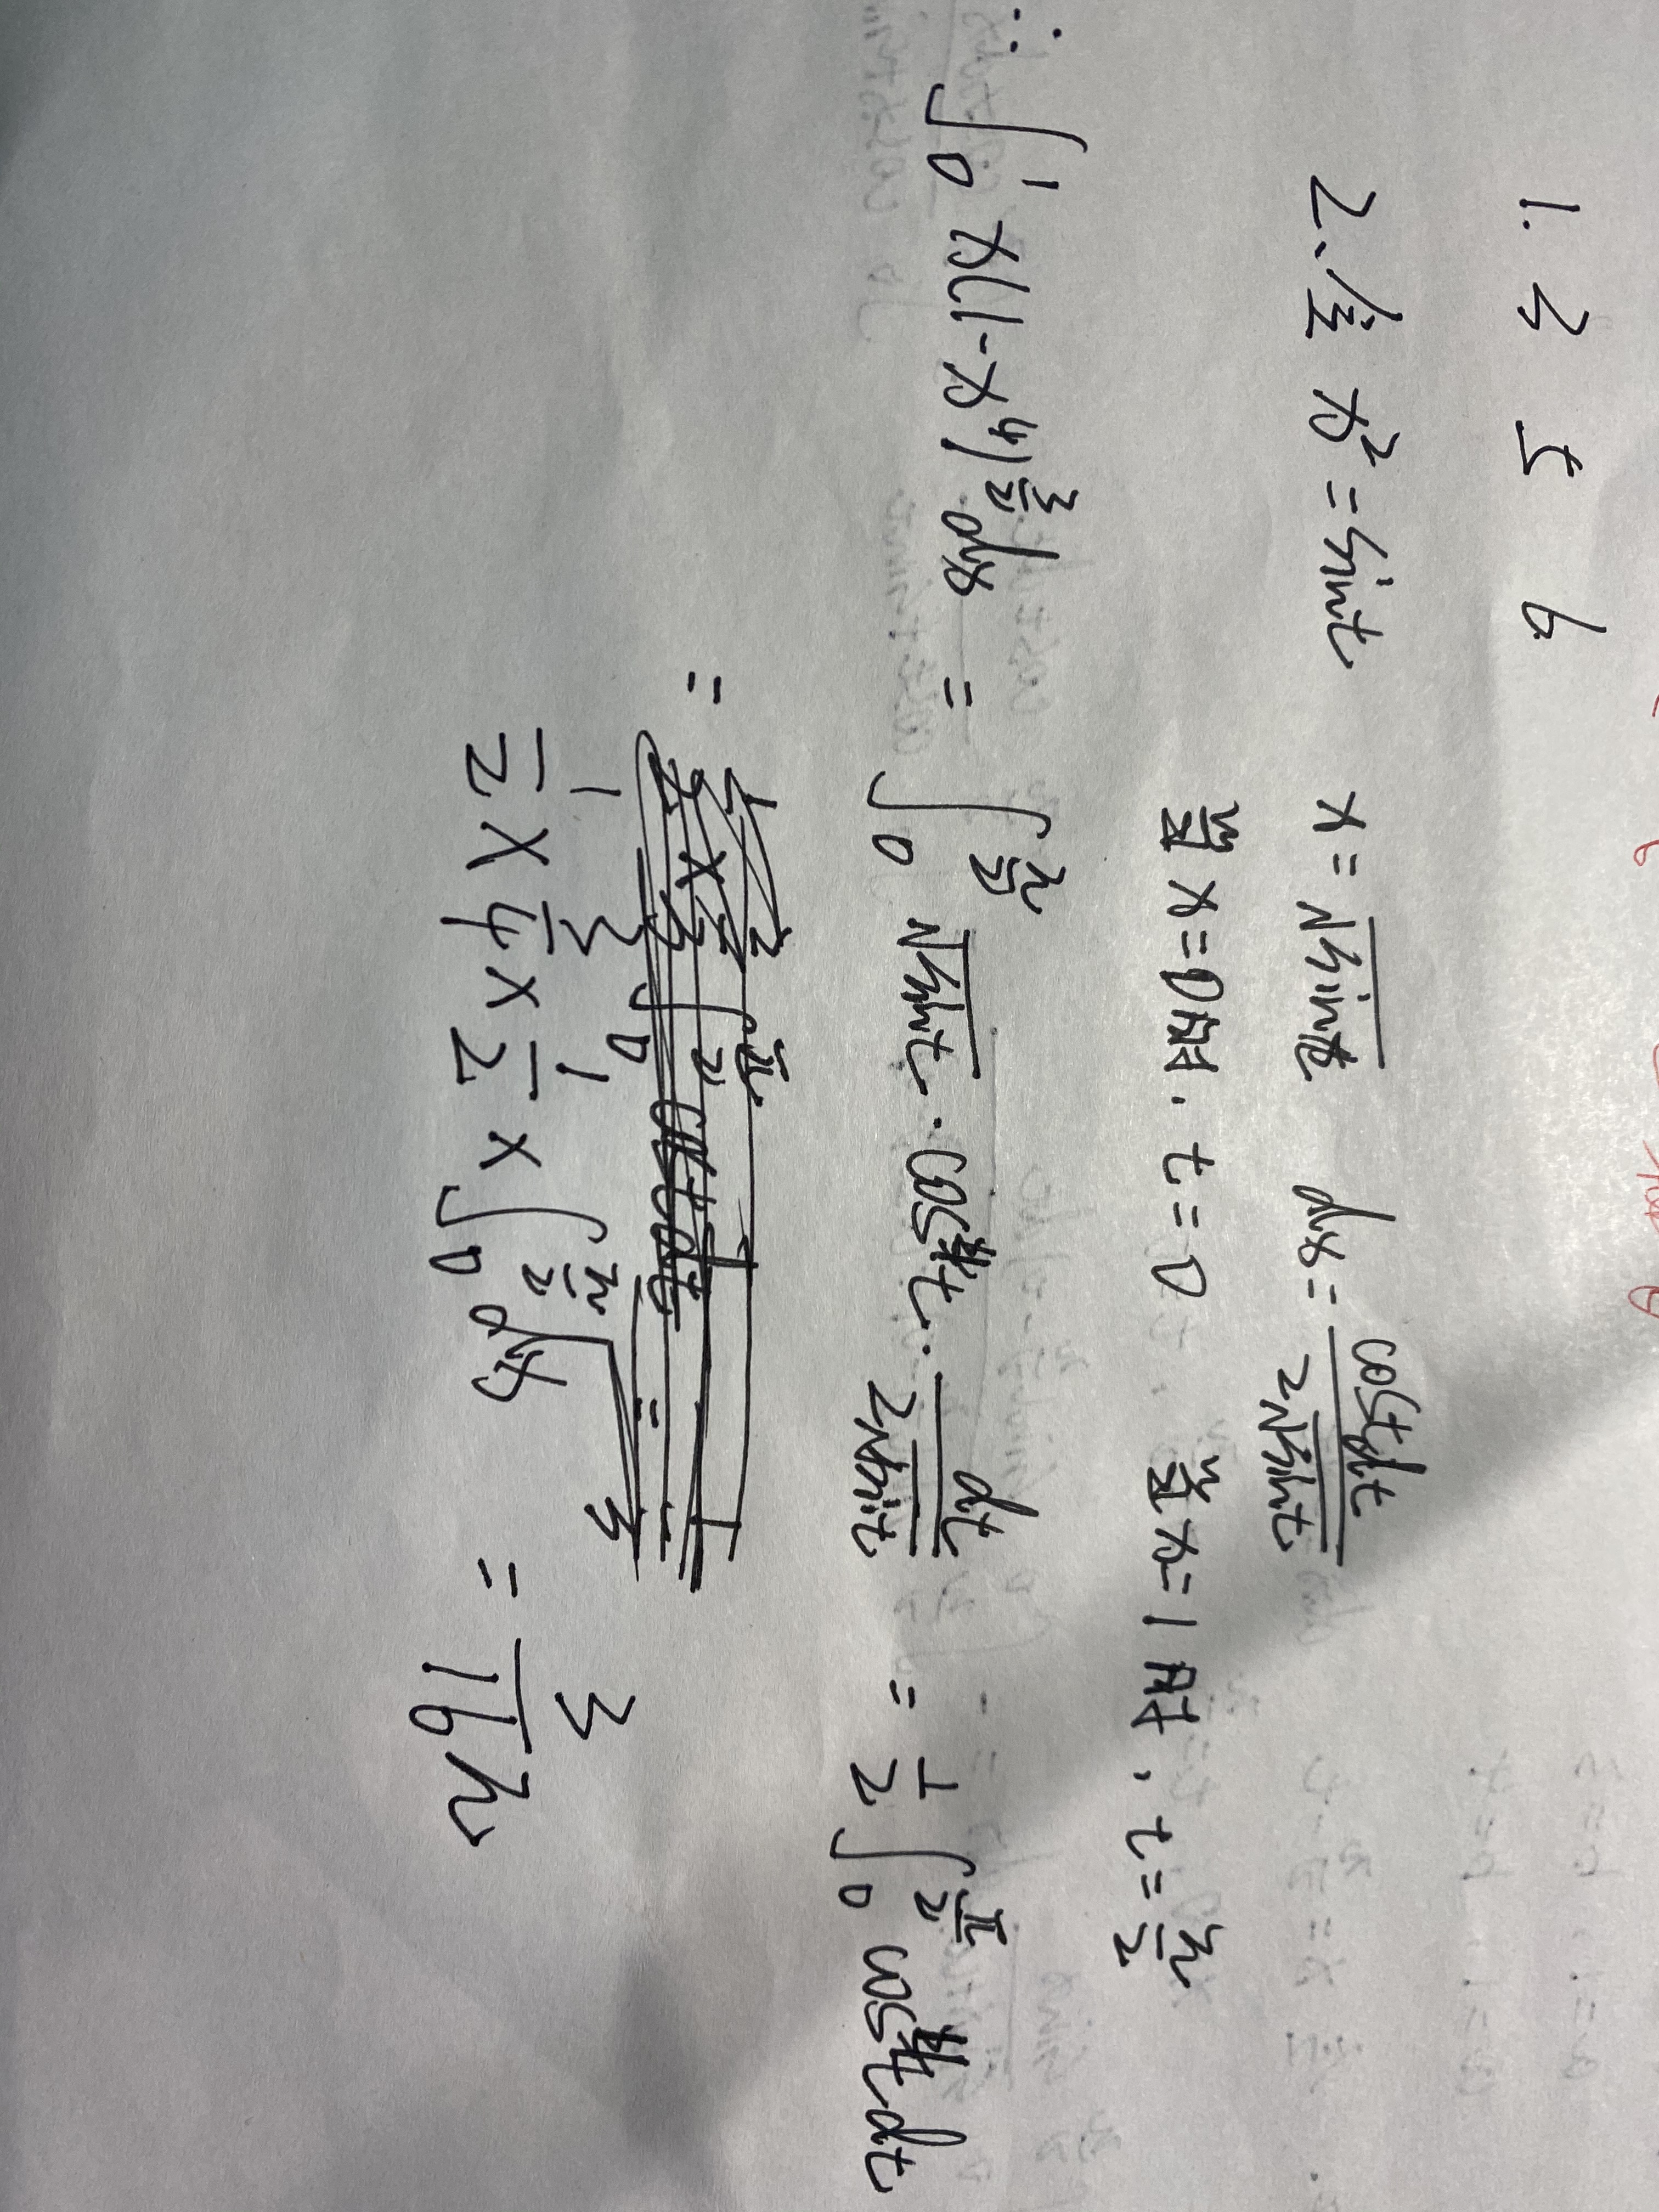 1. 3 5 6
2. 令 x²=sint x=√sint dx=costdt/2√sint
当x=0时. t=0 当x=1时. t=π/2
∴ ∫₀¹ x(1-x⁴)^(3/2) dx = ∫₀^(π/2) √sint · cos⁴t · dt/2√sint = 1/2 ∫₀^(π/2) cos⁴t dt
=
1/2 × 3/4 × 1/2 × ∫₀^(π/2) dy = 3/16 π